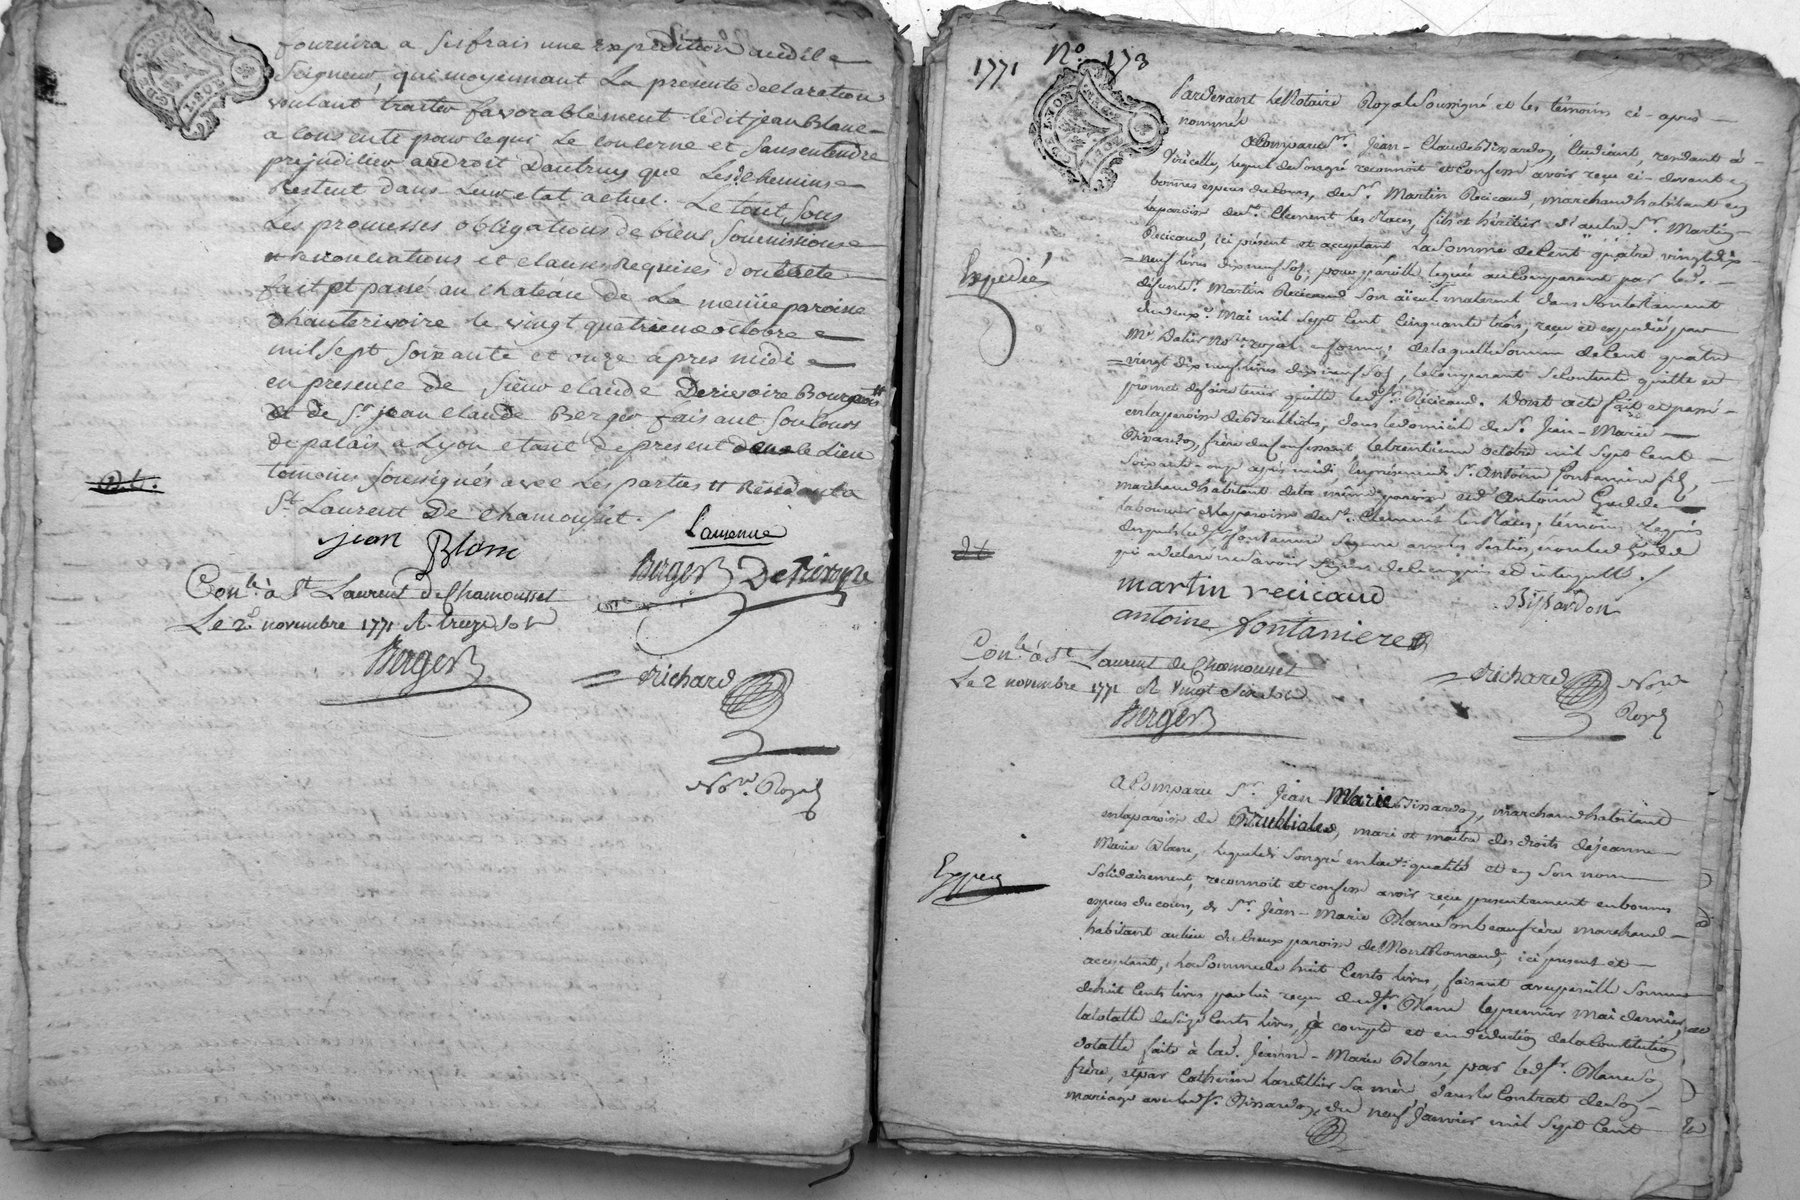 fournira a ses frais une expedition audit
Seigneur, qui moyennant La presente declaration
voulant traiter favorablement ledit jean Blanc
a consenti pour ce qui Le concerne et sans entendre
prejudicier au droit D'autruy que Lesd. chemins
Restent dans Leur etat actuel. Le tout sous
Les promesses obligations de biens soumissions
renonciations et clauses Requises dont acte
fait et passé au chateau de La meme paroisse
d'hauterivoire le vingt quatrieme octobre
mil sept soixante et onze apres midi
en presence de sieur claude Derivoire Bourgeois
et de Sr. jean claude Berger faisant son cours
de palais a Lyon etant de present dans le Lieu
temoins soussignés avec Les parties Résidant a
St. Laurent De chamousset ./
jean Blanc
Berger Derivoire
Conlé à St Laurent de Chamousset
Le 2 novembre 1771 R. treize sols
Berger
Richard
Nore. Royal
1771 No. 173
Pardevant le Notaire Royal soussigné et les témoins ci-après
nommés
A comparu Sr. Jean-Claude Bissardon, Etudiant, residant à
lequel de son gré reconnoit et confesse avoir reçu ci-devant en
bonnes especes du cours, du Sr. Martin Recicaud, marchand habitant en
la paroisse de St. Clement les Places, fils et héritier d'autre Sr. Martin
Recicaud, ici présent et acceptant La somme de Cent quatre vingt dix
neuf livres dix neuf sols, pour pareille leguée au Comparant par led.
défunt Sr. Martin Recicaud son aïeul maternel dans son testament
du deux Mai mil sept Cent Cinquante trois, reçu et expedié par
Me Dalier nore royal en forme; de laquelle somme de Cent quatre
vingt dix neuf livres dix neuf sols, le Comparant se Contente quitte et
promet de faire tenir quitte led. Sr. Recicaud. Dont acte fait et passé
en la paroisse de Brulliolles, dans le domicile de Sr. Jean-Marie
Bissardon, frère du Confessant le trentieme octobre mil sept Cent
soixante-onze après midi, en présence de Sr. Antoine Fontaniere fils,
marchand habitant de la même paroisse et d'Antoine
laboureur de la paroisse de St. Clement les Places, témoins requis
desquels led. Sr. Fontaniere a signé avec les parties, non led.
qui a declaré ne savoir signer de ce enquis et interpellé ./
Expedié
martin recicaud
Bissardon
antoine fontaniere
Conlé à St Laurent de Chamousset
Le 2 novembre 1771 R. Vingt six sols
Berger
Richard Nore
Royal
A Comparu Sr. Jean Marie Bissardon, marchand habitant
en la paroisse de Brullioles, mari et maître des droits de jeanne
Marie Blanc, lequel de son gré en lad. qualité et en son nom
solidairement, reconnoit et confesse avoir reçu presentement en bonnes
especes du cours, de Sr. Jean-Marie Blanc son beaufrère, marchand
habitant au lieu de paroisse de Montromand, ici present et
acceptant, la somme de huit Cents livres, faisant avec pareille somme
de huit Cents livres par lui reçue dud. Sr. Blanc le premier Mai dernier,
la totalle de seize Cents livres, à compte et en déduction de la Constitution
dotalle faite à lad. Jeanne-Marie Blanc, par led. Sr. Blanc son
frère, et par Catherine sa mère, dans le Contrat de son
mariage avec led. Sr. Bissardon, du neuf Janvier mil sept Cent
Exped.